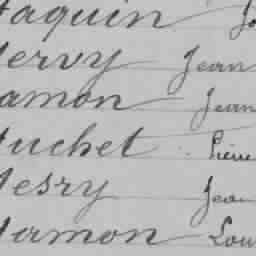 aquin Jo
ervy Jean
amon Jean
uchet Pierre
esry Jean
amon Lou